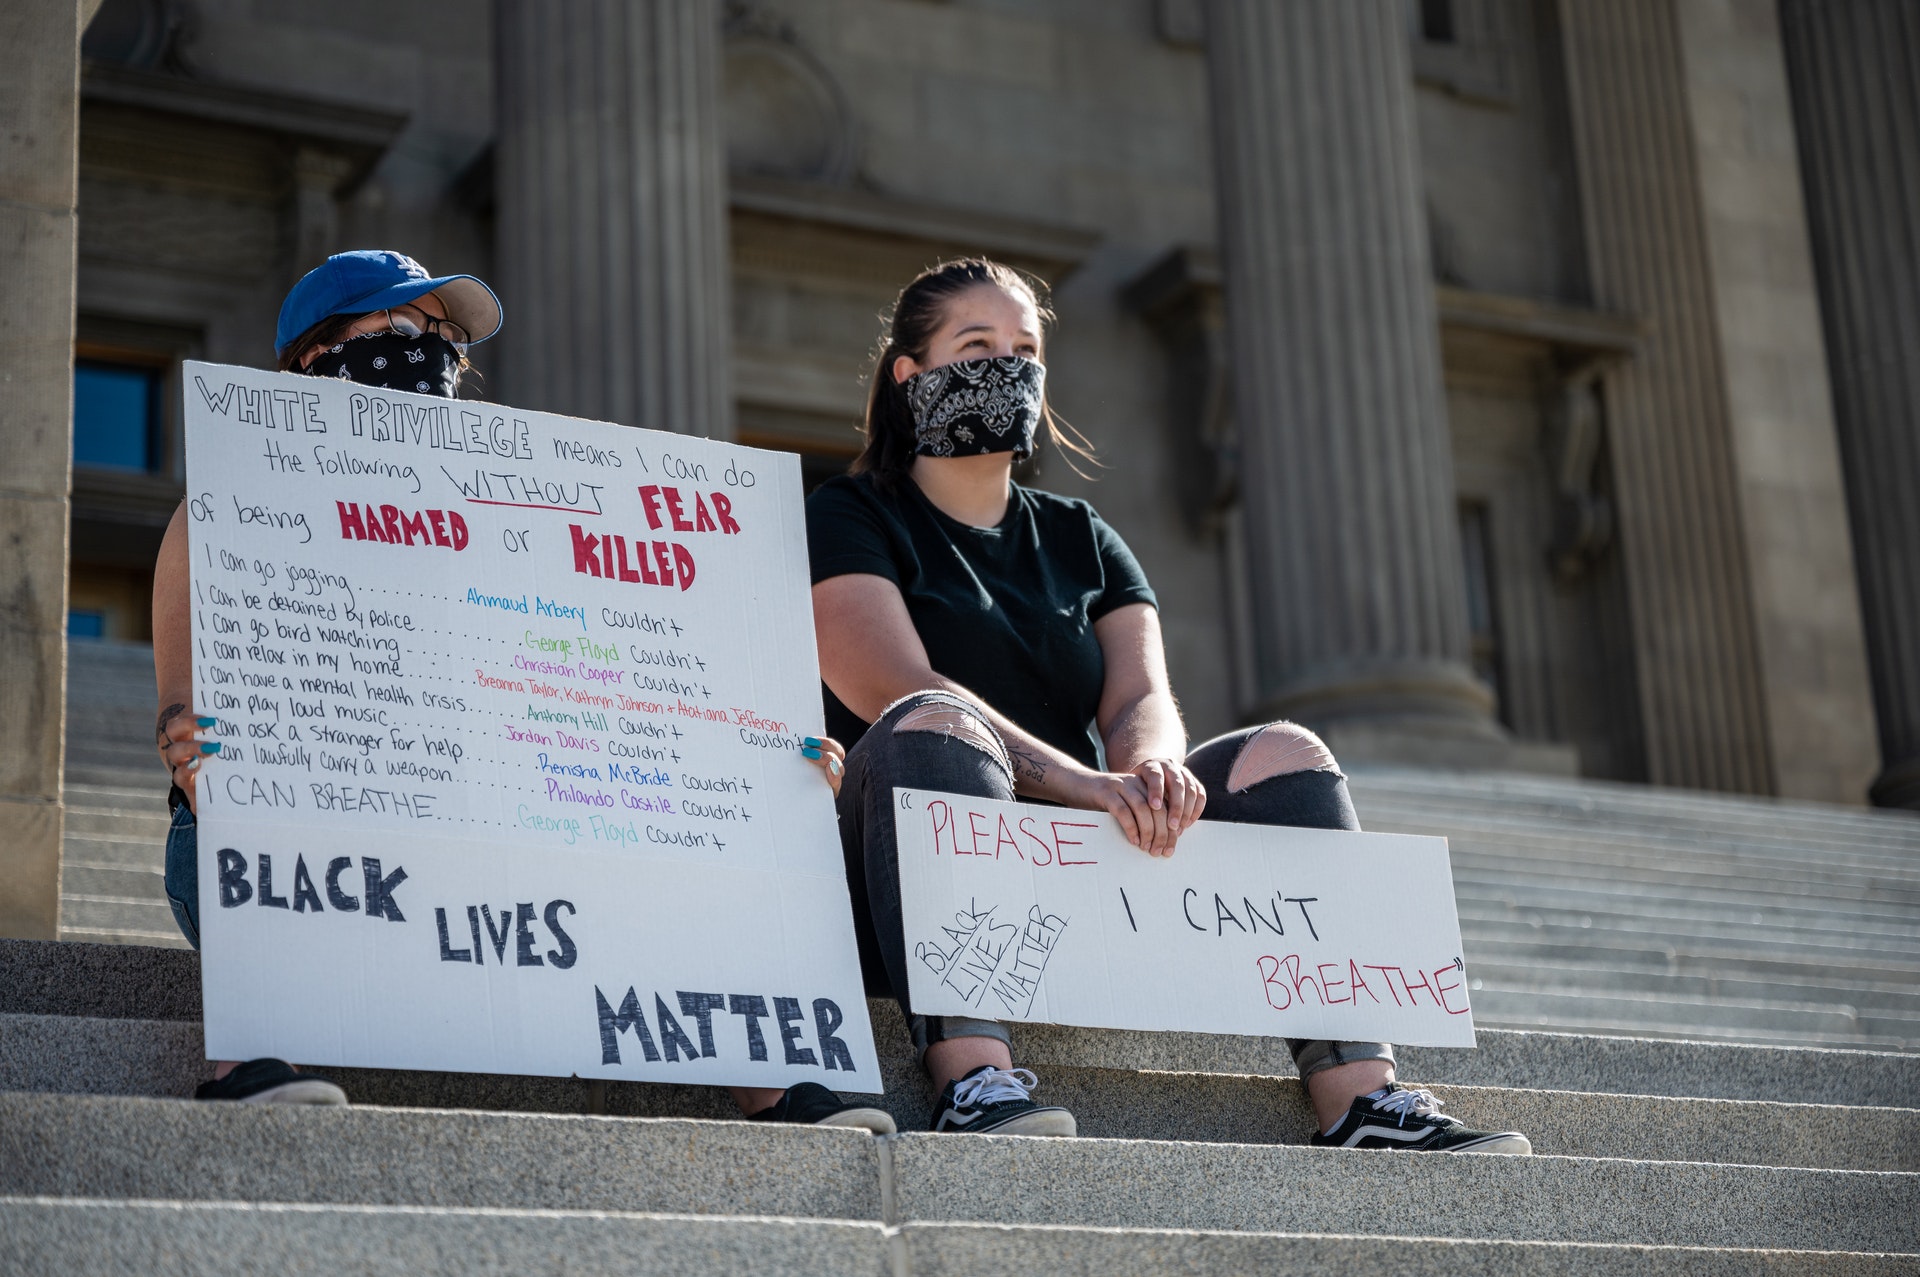 LA
WHITE PRIVILEGE means I can do
the following WITHOUT FEAR
of being HARMED or KILLED
I can go jogging.......... Ahmaud Arbery couldn't
I can be detained by police......... George Floyd couldn't
I can go bird watching.......... Christian Cooper couldn't
I can relax in my home....... Breanna Taylor, Kathryn Johnson + Atatiana Jefferson couldn't
I can have a mental health crisis...... Anthony Hill couldn't
I can play loud music.......... Jordan Davis couldn't
can ask a stranger for help....... Renisha McBride couldn't
can lawfully carry a weapon......... Philando Castile couldn't
I CAN BREATHE....... George Floyd couldn't
BLACK
LIVES
MATTER
"PLEASE
I CAN'T
BREATHE"
BLACK
LIVES
MATTER